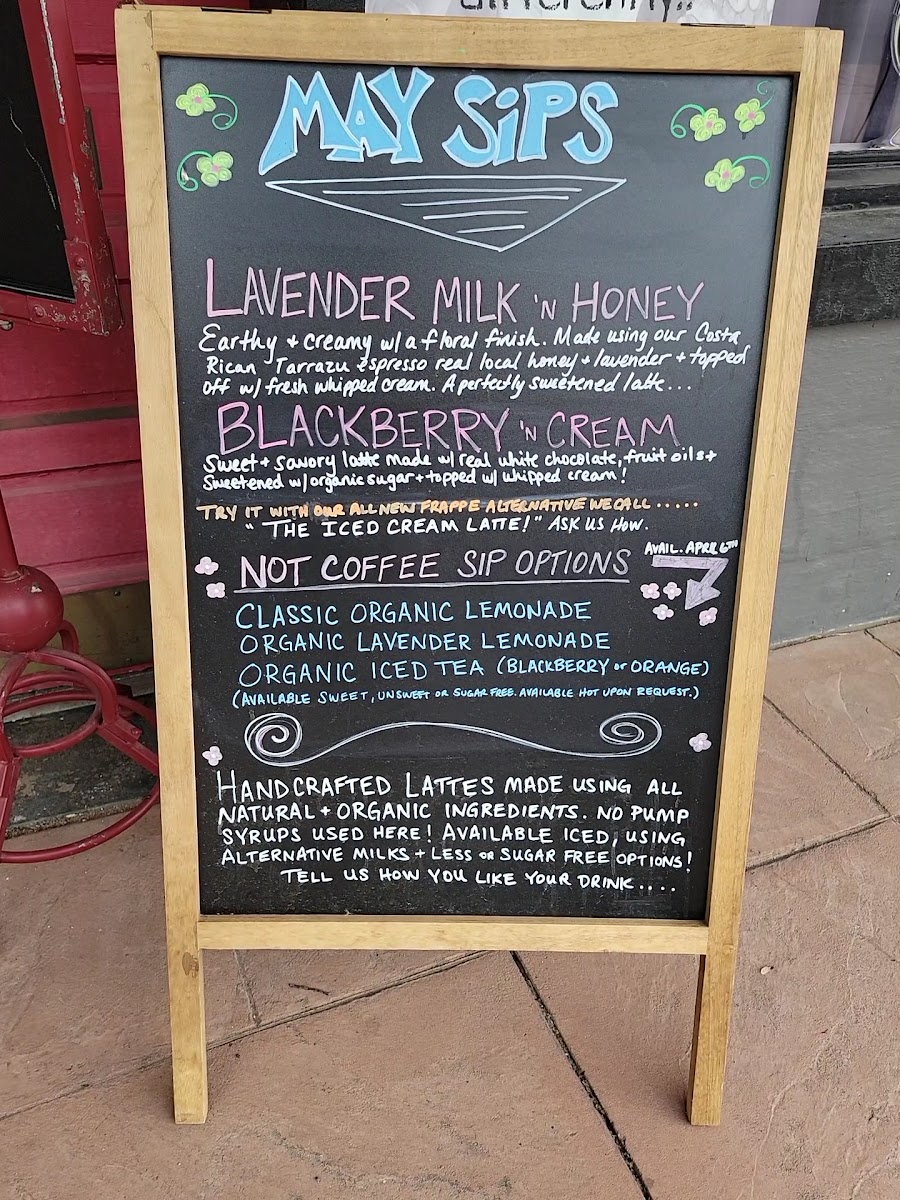 MAY SiPS
LAVENDER MILK 'N HONEY
Earthy + creamy w/ a floral finish. Made using our Costa
Rican Tarrazu espresso real local honey + lavender + topped
off w/ fresh whipped cream. A perfectly sweetened latte...
BLACKBERRY 'N CREAM
Sweet + savory latte made w/ real white chocolate, fruit oils +
Sweetened w/ organic sugar + topped w/ whipped cream!
TRY IT WITH OUR ALL NEW FRAPPE ALTERNATIVE WE CALL .....
" THE ICED CREAM LATTE!" ASK US HOW.
AVAIL. APRIL 6TH
NOT COFFEE SIP OPTIONS
CLASSIC ORGANIC LEMONADE
ORGANIC LAVENDER LEMONADE
ORGANIC ICED TEA (BLACKBERRY or ORANGE)
(AVAILABLE SWEET, UNSWEET OR SUGAR FREE. AVAILABLE HOT UPON REQUEST.)
HANDCRAFTED LATTES MADE USING ALL
NATURAL + ORGANIC INGREDIENTS. NO PUMP
SYRUPS USED HERE! AVAILABLE ICED, USING
ALTERNATIVE MILKS + LESS OR SUGAR FREE OPTIONS!
TELL US HOW YOU LIKE YOUR DRINK....